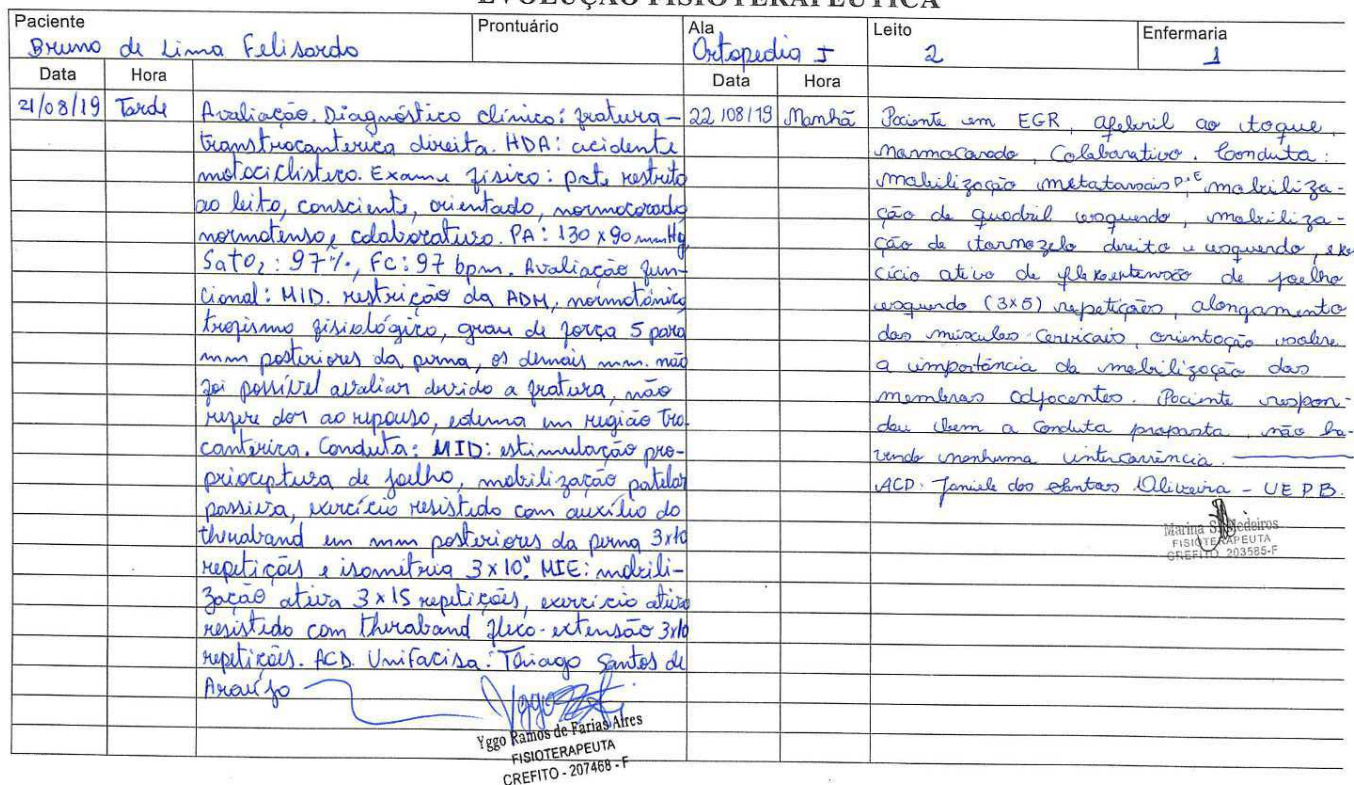 EVOLUÇÃO FISIOTERAPÊUTICA
Paciente
Prontuário
Ala
Leito
Enfermaria
Bruno de Lima Felisardo
Ortopedia I
2
1
Data
Hora
Data
Hora
21/08/19 Tarde
Avaliação. Diagnóstico clínico: fratura
transtrocanterica direita. HDA: acidente
motociclistico. Exame físico: pcte restrito
ao leito, consciente, orientado, normocorado
normotenso, colaborativo. PA: 130 x 90 mmHg
SatO2: 97%, FC: 97 bpm. Avaliação fun-
cional: MID. restrição da ADM, normotônico
trofismo fisiológico, grau de força 5 para
mm posteriores da perna, os demais mm. não
foi possível avaliar devido a fratura, não
refere dor ao repouso, edema em região tro-
canterica. Conduta: MID: estimulação pro-
prioceptura de joelho, mobilização patelar
passiva, exercício resistido com auxílio do
theraband em mm posteriores da perna 3x10
repetições e isometria 3x10". MIE: mobili-
zação ativa 3x15 repetições, exercício ativo
resistido com theraband flexo-extensão 3x10
repetições. ACD. UniFacisa: Thiago Santos de
Araújo
Yggo Ramos de Farias Aires
FISIOTERAPEUTA
CREFITO - 207468 - F
22/08/19 Manhã
Paciente em EGR, afebril ao toque,
normocorado, Colaborativo. Conduta:
mobilização metatarsais D.E mobiliza-
ção de quadril esquerdo, mobiliza-
ção de tornozelo direito e esquerdo, exer
cício ativo de flexoextensão de joelho
esquerdo (3x5) repetições, alongamento
dos músculos cervicais, orientação sobre
a importância da mobilização dos
membros adjacentes. Paciente respon-
deu bem a conduta proposta, não ha-
vendo nenhuma intercorrência.
ACD: Janiele dos Santos Oliveira - UEPB.
Marina S. Medeiros
FISIOTERAPEUTA
CREFITO 203585-F